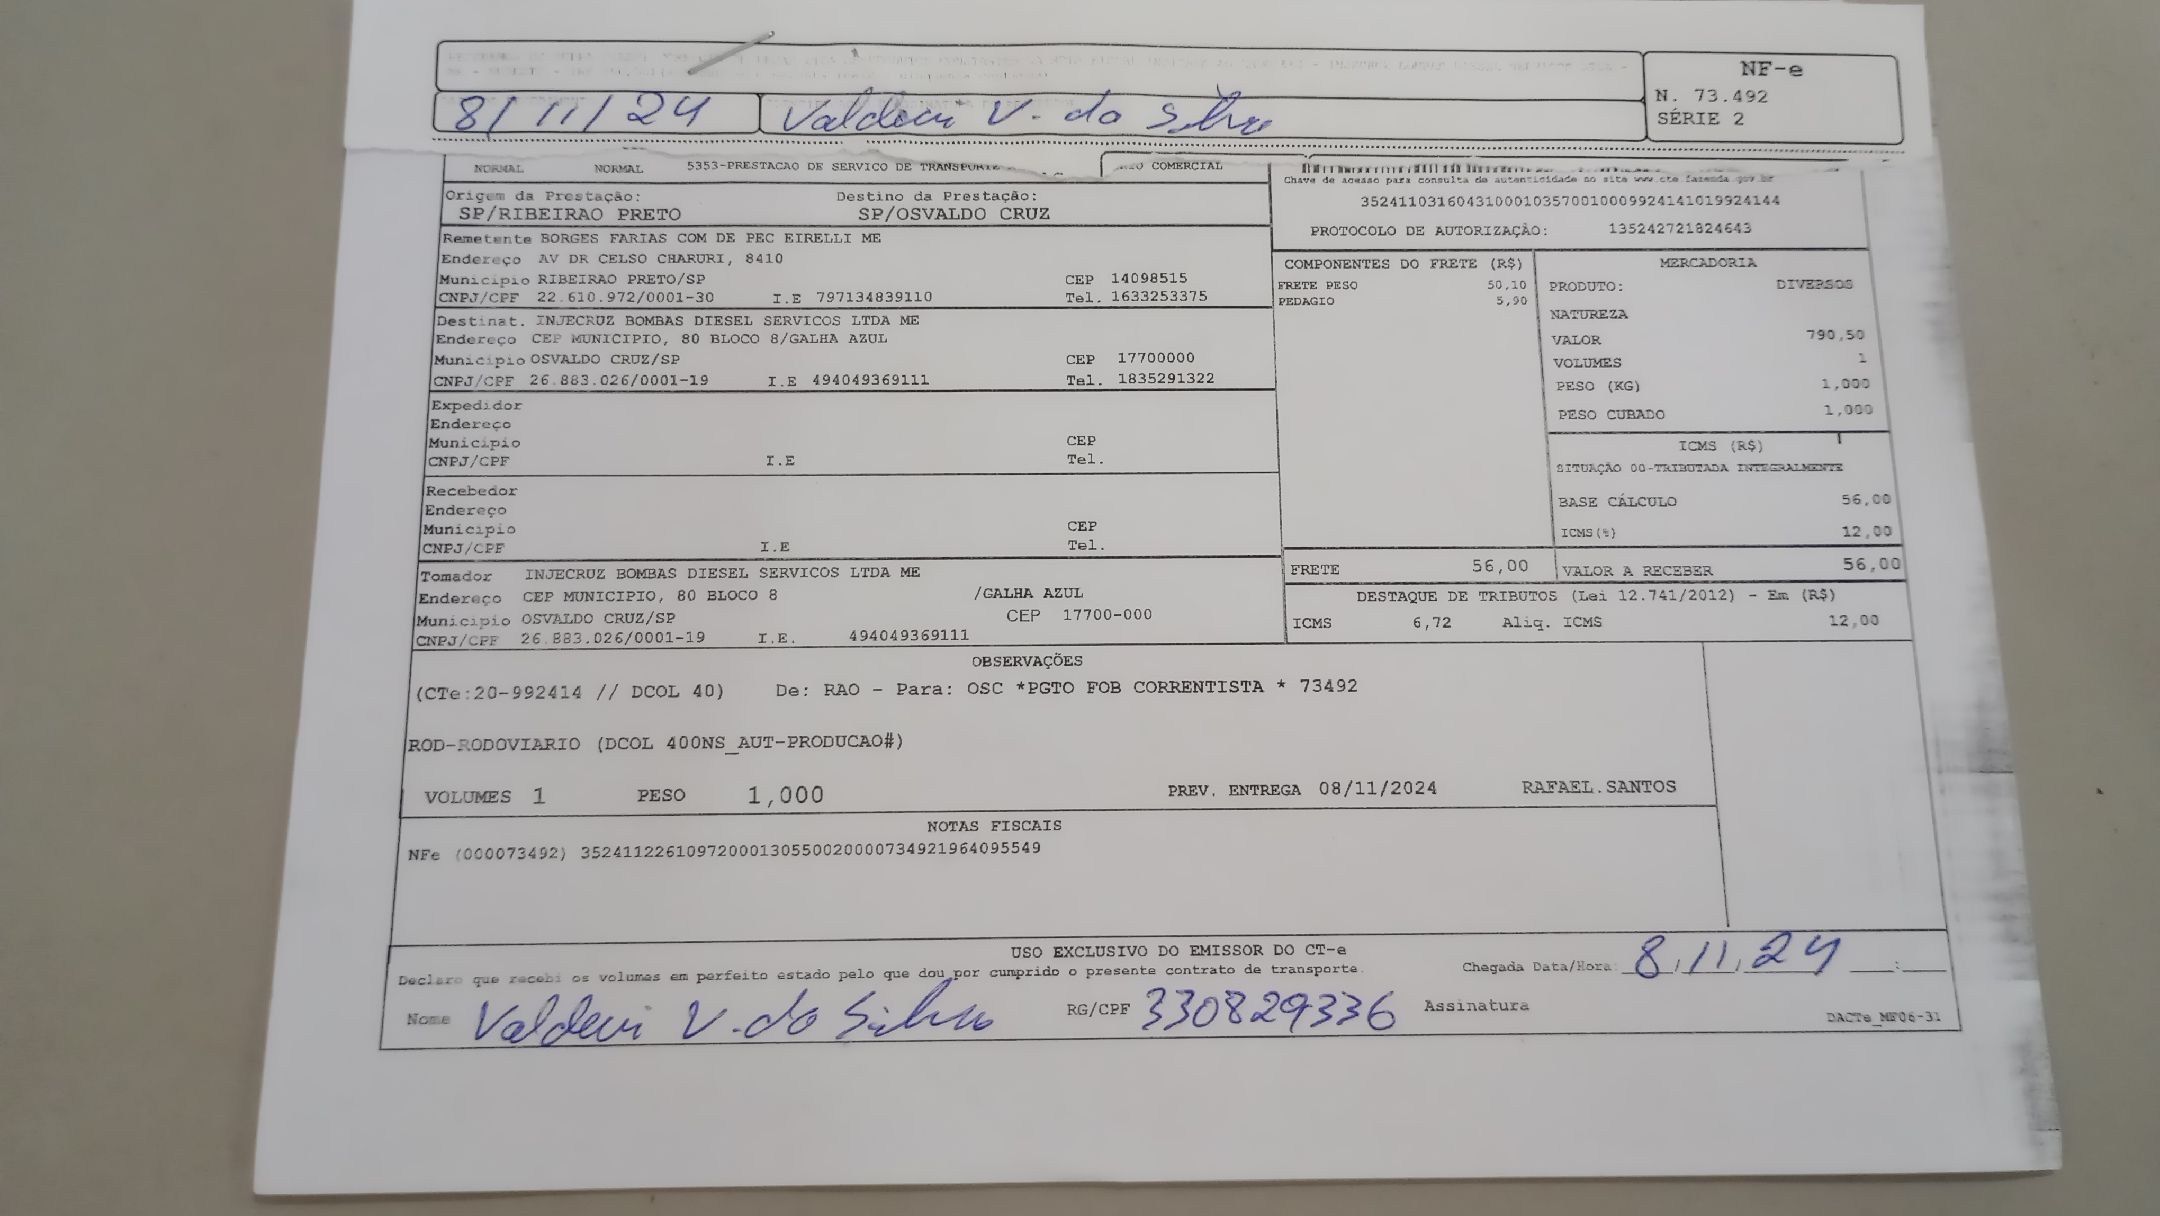 NF-e
N. 73.492
SÉRIE 2
8/11/24 Valdeni V. da Silva
NORMAL NORMAL 5353-PRESTACAO DE SERVICO DE TRANSPORTE COMERCIAL
Chave de acesso para consulta de autenticidade no site www.cte.fazenda.gov.br
35241103160431000103570010009924141019924144
PROTOCOLO DE AUTORIZAÇÃO: 135242721824643
Origem da Prestação: Destino da Prestação:
SP/RIBEIRAO PRETO SP/OSVALDO CRUZ
Remetente BORGES FARIAS COM DE PEC EIRELLI ME
Endereço AV DR CELSO CHARURI, 8410
Municipio RIBEIRAO PRETO/SP CEP 14098515
CNPJ/CPF 22.610.972/0001-30 I.E 797134839110 Tel. 1633253375
Destinat. INJECRUZ BOMBAS DIESEL SERVICOS LTDA ME
Endereço CEP MUNICIPIO, 80 BLOCO 8/GALHA AZUL
Municipio OSVALDO CRUZ/SP CEP 17700000
CNPJ/CPF 26.883.026/0001-19 I.E 494049369111 Tel. 1835291322
Expedidor
Endereço
Municipio CEP
CNPJ/CPF I.E Tel.
Recebedor
Endereço
Municipio CEP
CNPJ/CPF I.E Tel.
Tomador INJECRUZ BOMBAS DIESEL SERVICOS LTDA ME
Endereço CEP MUNICIPIO, 80 BLOCO 8 /GALHA AZUL
Municipio OSVALDO CRUZ/SP CEP 17700-000
CNPJ/CPF 26.883.026/0001-19 I.E. 494049369111
COMPONENTES DO FRETE (R$)
FRETE PESO 50,10
PEDAGIO 5,90
FRETE 56,00
MERCADORIA
PRODUTO: DIVERSOS
NATUREZA
VALOR 790,50
VOLUMES 1
PESO (KG) 1,000
PESO CUBADO 1,000
ICMS (R$)
SITUAÇÃO 00-TRIBUTADA INTEGRALMENTE
BASE CÁLCULO 56,00
ICMS(%) 12,00
VALOR A RECEBER 56,00
DESTAQUE DE TRIBUTOS (Lei 12.741/2012) - Em (R$)
ICMS 6,72 Aliq. ICMS 12,00
OBSERVAÇÕES
(CTe:20-992414 // DCOL 40) De: RAO - Para: OSC *PGTO FOB CORRENTISTA * 73492
ROD-RODOVIARIO (DCOL 400NS_AUT-PRODUCAO#)
VOLUMES 1 PESO 1,000 PREV. ENTREGA 08/11/2024 RAFAEL.SANTOS
NOTAS FISCAIS
NFe (000073492) 35241122610972000130550020000734921964095549
USO EXCLUSIVO DO EMISSOR DO CT-e
Declaro que recebi os volumes em perfeito estado pelo que dou por cumprido o presente contrato de transporte.
Chegada Data/Hora: 8/11/24 __:__
Nome Valdeni V. da Silva RG/CPF 330829336 Assinatura
DACTe_MF06-31